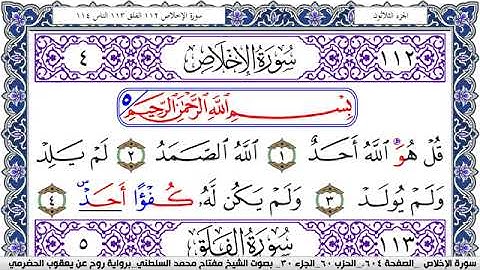 الجزء الثلاثون سورة الإخلاص ١١٢ الفلق ١١٣ الناس ١١٤
١١٢ سُورَةُ الإِخْلَاصِ ٤
بِسْمِ اللَّهِ الرَّحْمَٰنِ الرَّحِيمِ ٥
قُلْ هُوَ اللَّهُ أَحَدٌ ١ اللَّهُ الصَّمَدُ ٢ لَمْ يَلِدْ
وَلَمْ يُولَدْ ٣ وَلَمْ يَكُن لَّهُ كُفْؤًا أَحَدٌ ٤
١١٣ سُورَةُ الفَلَقِ ٥
سورة الإخلاص _ الصفحة ٦٠٤_ الحزب ٦٠_ الجزء ٣٠_ بصوت الشيخ مفتاح محمد السلطني_ برواية روح عن يعقوب الحضرمي